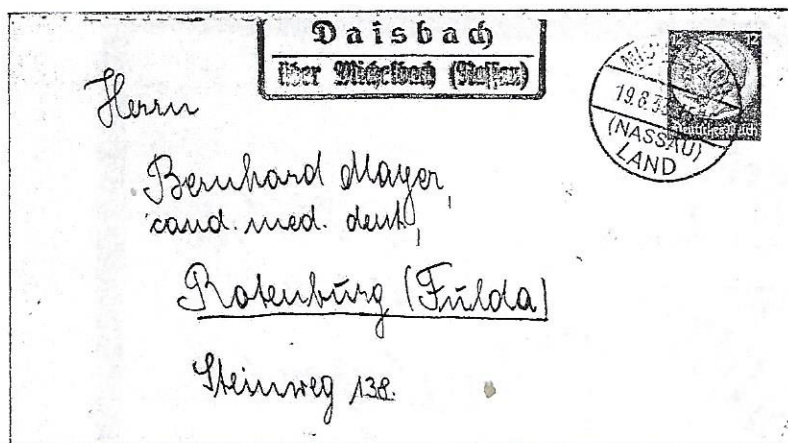 Daisbach
über Michelbach (Nassau)
12 12
19.8.33
Deutsches Reich
(NASSAU)
LAND
Herrn
Bernhard Mayer,
cand. med. dent,
Rotenburg (Fulda)
Steinweg 138.